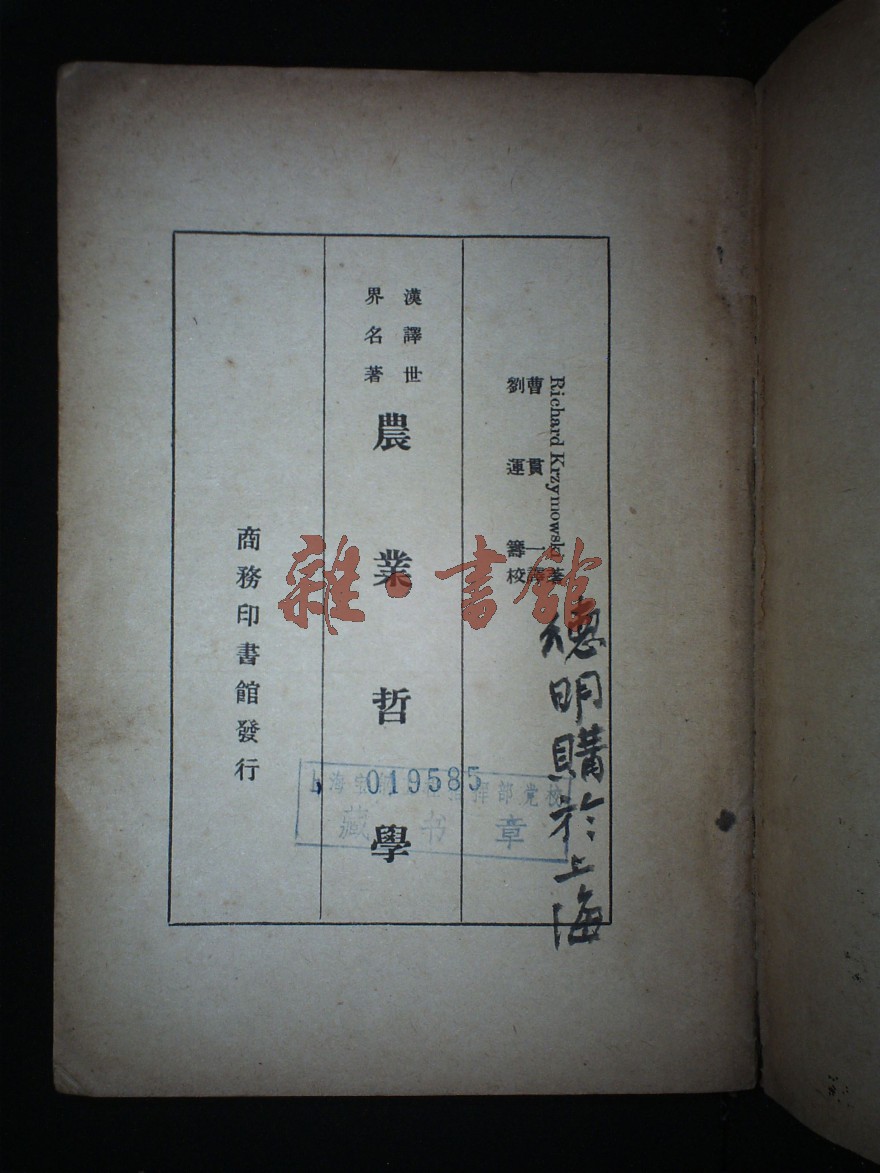 Richard Krzymowski 著
曹貫一譯
劉運籌校
漢譯世
界名著
農業哲學
商務印書館發行
德明購於上海
019585
藏书章
雜·書館